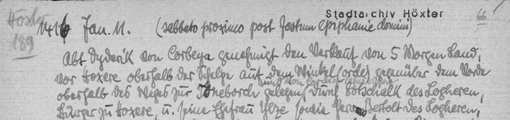 Stadtarchiv Höxter
Höxter 189
1416 Jan. 11. (sabbato proximo post festum Epiphanie domini) 66
Abt Dyderik von Corbeya genehmigt den Verkauf von 5 Morgen Land,
vor Hoxere oberhalb der auf dem Winkel (orde) gegenüber dem Vorde
oberhalb des Weges zur gelegen, durch Gotschalk des Logheren,
Bürger zu Hoxere, u. seine Ehefrau Ylze sowie Bertolt des Logheren,